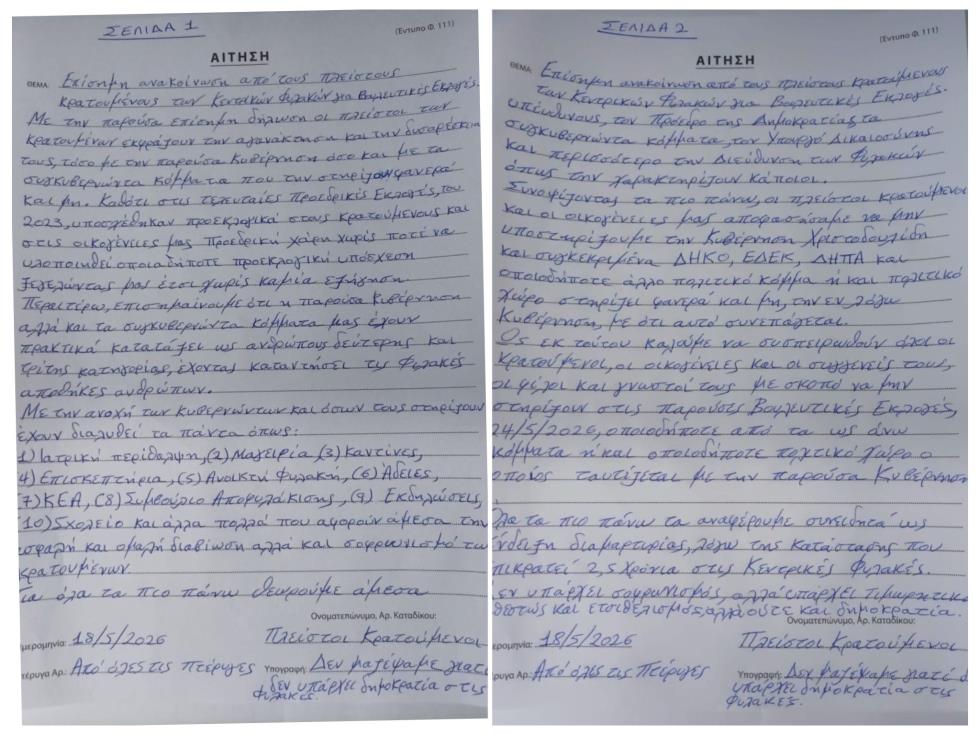 ΣΕΛΙΔΑ 1
(Έντυπο Φ. 111)
ΑΙΤΗΣΗ
ΘΕΜΑ: Επίσημη ανακοίνωση από τους πλείστους
κρατουμένους των Κεντρικών Φυλακών για Βουλευτικές Εκλογές.
Με την παρούσα επίσημη δήλωση οι πλείστοι των
κρατουμένων εκφράζουν την αγανάκτηση και την δυσαρέσκεια
τους, τόσο με την παρούσα Κυβέρνηση όσο και με τα
συγκυβερνώντα κόμματα που την στηρίζουν φανερά
και μη. Καθότι στις τελευταίες Προεδρικές Εκλογές, του
2023, υποσχέθηκαν προεκλογικά στους κρατούμενους και
στις οικογένειες μας Προεδρική χάρη χωρίς ποτέ να
υλοποιηθεί οποιαδήποτε προεκλογική υπόσχεση
ξεγελώντας μας έτσι χωρίς καμία εξήγηση.
Περαιτέρω, επισημαίνουμε ότι η παρούσα Κυβέρνηση
αλλά και τα συγκυβερνώντα κόμματα μας έχουν
πρακτικά κατατάξει ως ανθρώπους δεύτερης και
τρίτης κατηγορίας, έχοντας καταντήσει τις Φυλακές
αποθήκες ανθρώπων.
Με την ανοχή των Κυβερνώντων και όσων τους στηρίζουν
έχουν διαλυθεί τα πάντα όπως:
1) Ιατρική περίθαλψη, (2) Μαγειρία, (3) Καντίνες,
4) Επισκεπτήρια, (5) Ανοικτή Φυλακή, (6) Άδειες,
(7) ΚΕΑ, (8) Συμβούλιο Αποφυλάκισης, (9) Εκδηλώσεις,
(10) Σχολείο και άλλα πολλά που αφορούν άμεσα την
ασφαλή και ομαλή διαβίωση αλλά και σοφρωνισμό των
κρατουμένων
Για όλα τα πιο πάνω θεωρούμε άμεσα
Ονοματεπώνυμο, Αρ. Καταδίκου:
μερομηνία: 18/5/2026 Πλείστοι Κρατούμενοι
τέρυγα Αρ.: Από όλες τις πτέρυγες Υπογραφή: Δεν μαζέψαμε γιατί
δεν υπάρχει δημοκρατία στις
Φυλακές.
ΣΕΛΙΔΑ 2
(Έντυπο Φ. 111)
ΑΙΤΗΣΗ
ΘΕΜΑ: Επίσημη ανακοίνωση από τους πλείστους κρατουμένους
των Κεντρικών Φυλακών για Βουλευτικές Εκλογές.
υπεύθυνους, τον Πρόεδρο της Δημοκρατίας, τα
συγκυβερνώντα κόμματα, τον Υπουργό Δικαιοσύνης
και περισσότερο την Διεύθυνση των Φυλακών
όπως την χαρακτηρίζουν κάποιοι.
Συνοψίζοντας τα πιο πάνω, οι πλείστοι κρατούμενοι
και οι οικογένειες μας αποφασίσαμε να μην
υποστηρίξουμε την Κυβέρνηση Χριστοδουλίδη
και συγκεκριμένα ΔΗΚΟ, ΕΔΕΚ, ΔΗΠΑ και
οποιοδήποτε άλλο πολιτικό κόμμα ή και πολιτικό
χώρο στηρίζει φανερά και μη, την εν λόγω
Κυβέρνηση, με ότι αυτό συνεπάγεται.
Ως εκ τούτου καλούμε να συσπειρωθούν όλοι οι
κρατούμενοι, οι οικογένειες και οι συγγενείς τους,
οι φίλοι και γνωστοί τους με σκοπό να μην
στηρίξουν στις παρούσες Βουλευτικές Εκλογές,
24/5/2026, οποιοδήποτε από τα ως άνω
κόμματα ή και οποιοδήποτε πολιτικό χώρο ο
οποίος ταυτίζεται με την παρούσα Κυβέρνηση
Όλα τα πιο πάνω τα αναφέρουμε συνειδητά ως
ένδειξη διαμαρτυρίας, λόγω της κατάστασης που
επικρατεί 2,5 χρόνια στις Κεντρικές Φυλακές.
Δεν υπάρχει σοφρωνισμός, αλλά υπάρχει τιμωρητικό
καθεστώς και ετσιθελισμός, αλλά ούτε και δημοκρατία.
Ονοματεπώνυμο, Αρ. Καταδίκου:
ερομηνία: 18/5/2026 Πλείστοι Κρατούμενοι
ρυγα Αρ.: Από όλες τις Πτέρυγες Υπογραφή: Δεν μαζέψαμε γιατί δ
υπάρχει δημοκρατία στις
Φυλακές.